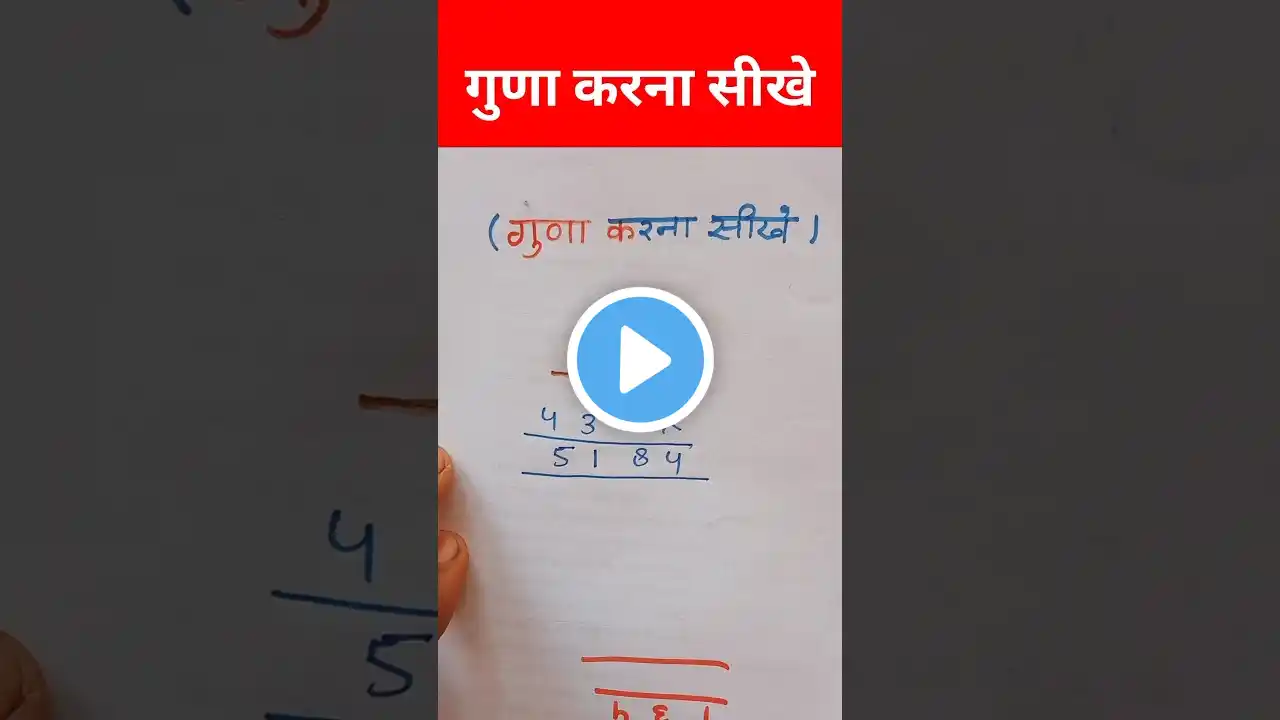 गुणा करना सीखे
(गुणा करना सीखे)
4 3
5 1 8 4
4
5